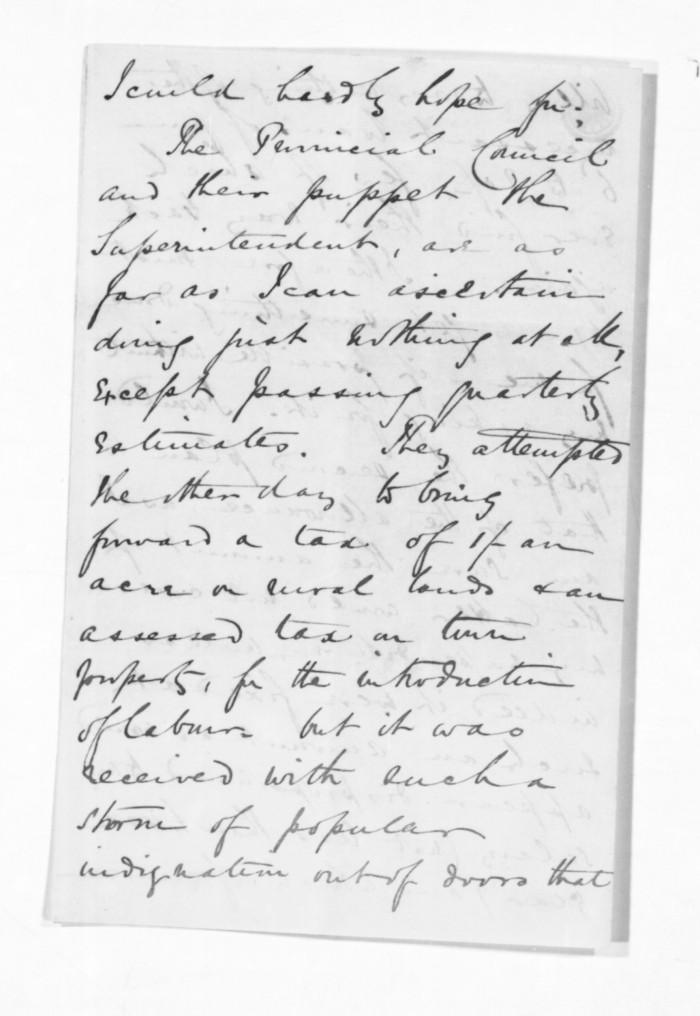 I could hardly hope for.
The Provincial Council
and their puppet the
Superintendent, are as
far as I can ascertain
doing just nothing at all,
except passing quarterly
estimates. They attempted
the other day to bring
forward a tax of 1/ an
acre on rural lands & an
assessed tax on town
property, for the introduction
of labour but it was
received with such a
storm of popular
indignation out of doors that